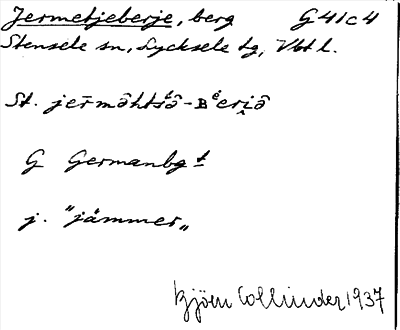 Jermetjeberje, berg G 41 c 4
Stensele sn, Lycksele tg, Vbt l.
St. jer̄måhtsᵗå̂-ʙᵉeri̯å̂
G Germanbgt
j. "jämmer„
Björn Collinder 1937